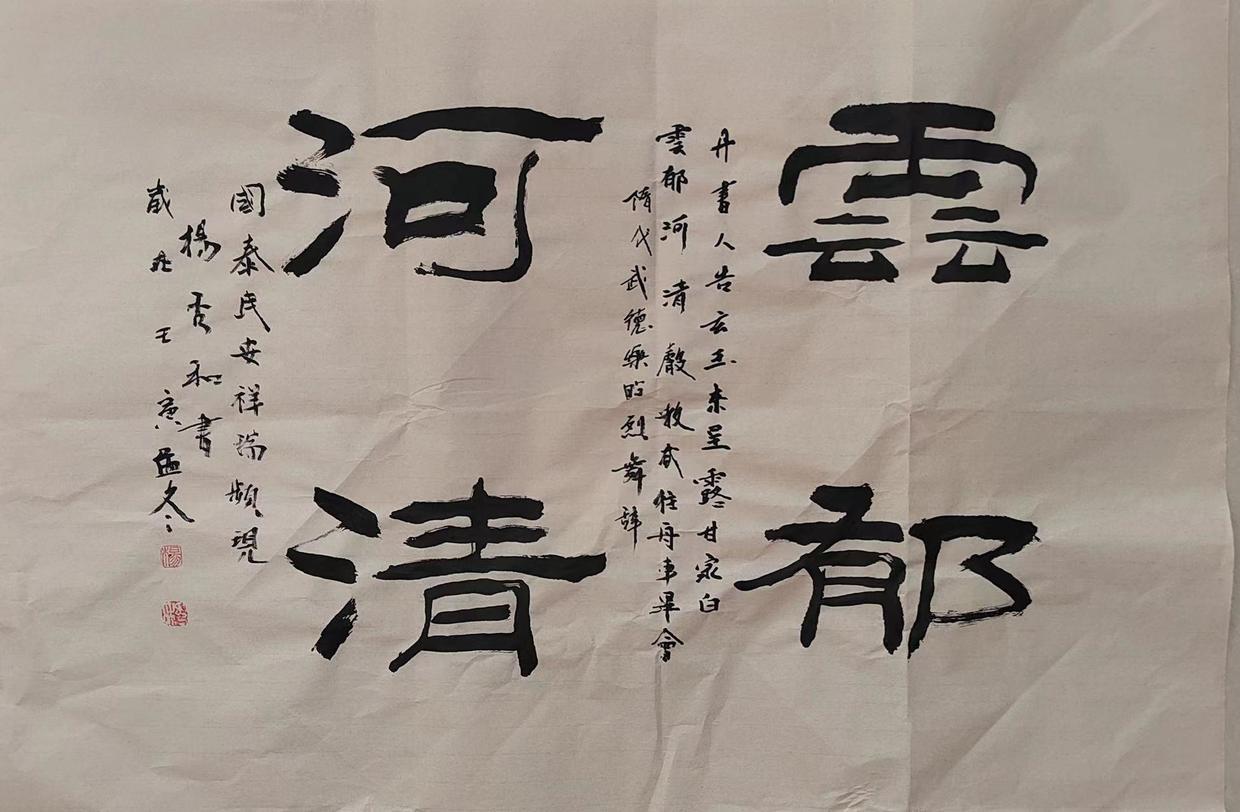 雲郁
丹書入告玄玉来呈露甘泉白
雲郁河清聲教咸往舟車畢會
隋代武德樂昭烈舞辭
河清
國泰民安祥瑞頻現
楊和書
歲在壬寅孟冬